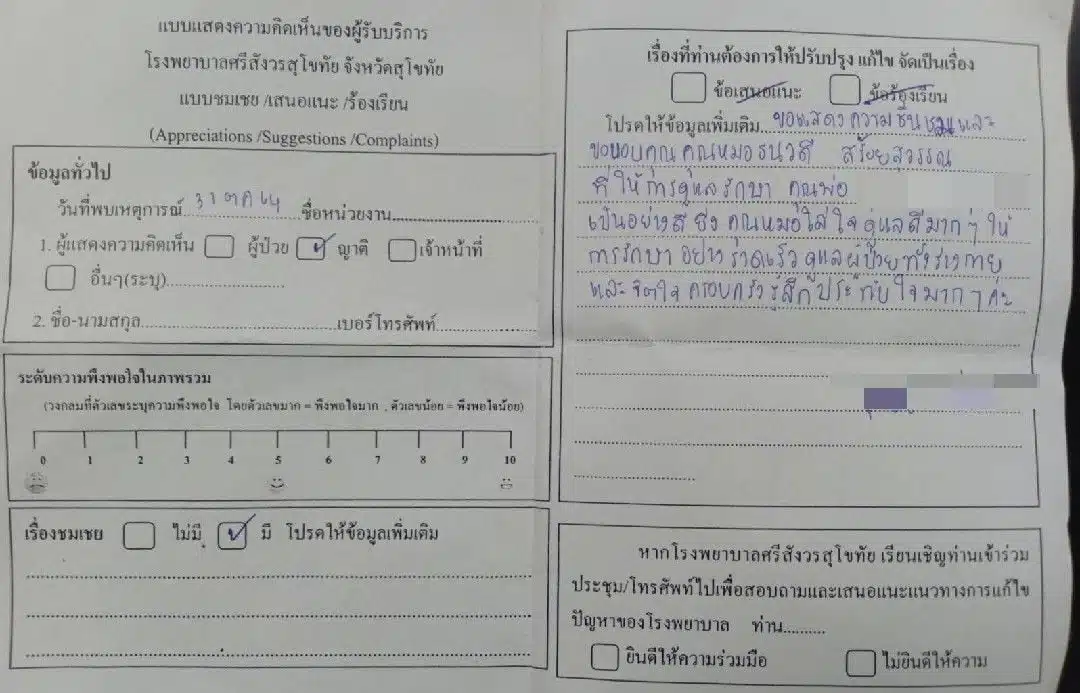 แบบแสดงความคิดเห็นของผู้รับบริการ
โรงพยาบาลศรีสังวรสุโขทัย จังหวัดสุโขทัย
แบบชมเชย /เสนอแนะ /ร้องเรียน
(Appreciations /Suggestions /Complaints)
ข้อมูลทั่วไป
วันที่พบเหตุการณ์ 31 ตค 64 ชื่อหน่วยงาน
1. ผู้แสดงความคิดเห็น ผู้ป่วย ญาติ เจ้าหน้าที่
อื่นๆ(ระบุ)
2. ชื่อ-นามสกุล เบอร์โทรศัพท์
ระดับความพึงพอใจในภาพรวม
(วงกลมที่ตัวเลขระบุความพึงพอใจ โดยตัวเลขมาก = พึงพอใจมาก , ตัวเลขน้อย = พึงพอใจน้อย)
0 1 2 3 4 5 6 7 8 9 10
เรื่องชมเชย ไม่มี มี โปรดให้ข้อมูลเพิ่มเติม
เรื่องที่ท่านต้องการให้ปรับปรุง แก้ไข จัดเป็นเรื่อง
ข้อเสนอแนะ ข้อร้องเรียน
โปรดให้ข้อมูลเพิ่มเติม ขอแสดงความชื่นชมและ
ขอขอบคุณคุณหมอธนวดี สร้อยสุวรรณ
ที่ให้การดูแลรักษา คุณพ่อ
เป็นอย่างดี ซึ่งคุณหมอใส่ใจดูแลดีมากๆ ให้
การรักษาอย่างรวดเร็ว ดูแลผู้ป่วยทั้งร่างกาย
และจิตใจ ครอบครัวรู้สึกประทับใจมากๆค่ะ
หากโรงพยาบาลศรีสังวรสุโขทัย เรียนเชิญท่านเข้าร่วม
ประชุม/โทรศัพท์ไปเพื่อสอบถามและเสนอแนะแนวทางการแก้ไข
ปัญหาของโรงพยาบาล ท่าน
ยินดีให้ความร่วมมือ ไม่ยินดีให้ความ